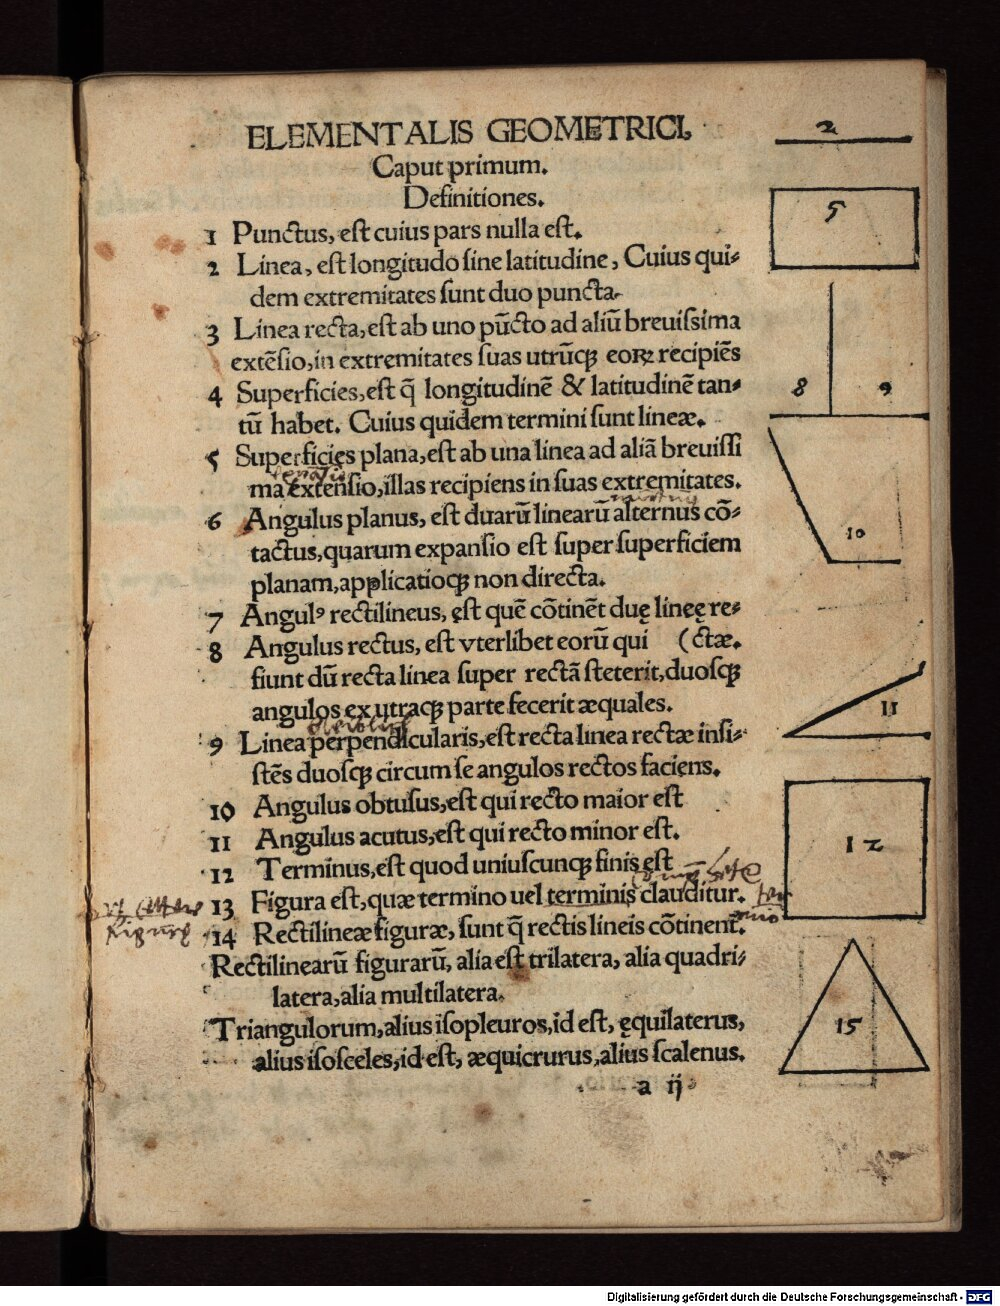 ELEMENTALIS GEOMETRICI,
Caput primum.
Definitiones.
1 Punctus, est cuius pars nulla est.
2 Linea, est longitudo sine latitudine, Cuius qui-
dem extremitates sunt duo puncta.
3 Linea recta, est ab uno pūcto ad aliū breuissima
extēsio, in extremitates suas utrūcꝗ eoꝝ recipiēs
4 Superficies, est q̄ longitudinē & latitudinē tan-
tū habet. Cuius quidem termini sunt lineæ.
5 Superficies plana, est ab una linea ad aliā breuissi
ma extensio, illas recipiens in suas extremitates.
6 Angulus planus, est duarū linearū alternus cō-
tactus, quarum expansio est super superficiem
planam, applicatiocꝗ non directa.
7 Angulꝰ rectilineus, est quē cōtinēt duę lineę re-
8 Angulus rectus, est vterlibet eorū qui (ctæ.
fiunt dū recta linea super rectā steterit, duoscꝗ
angulos ex utracꝗ parte fecerit æquales.
9 Linea perpendicularis, est recta linea rectæ insi-
stēs duoscꝗ circum se angulos rectos faciens.
10 Angulus obtusus, est qui recto maior est
11 Angulus acutus, est qui recto minor est.
12 Terminus, est quod uniuscuncꝗ finis est
13 Figura est, quæ termino uel terminis clauditur.
14 Rectilineæ figuræ, sunt q̄ rectis lineis cōtinent̄.
Rectilinearū figurarū, alia est trilatera, alia quadri-
latera, alia multilatera.
Triangulorum, alius isopleuros, id est, ęquilaterus,
alius isosceles, id est, æquicrurus, alius scalenus.
a ij
2
5
8 9
10
11
12
15
Digitalisierung gefördert durch die Deutsche Forschungsgemeinschaft - DFG